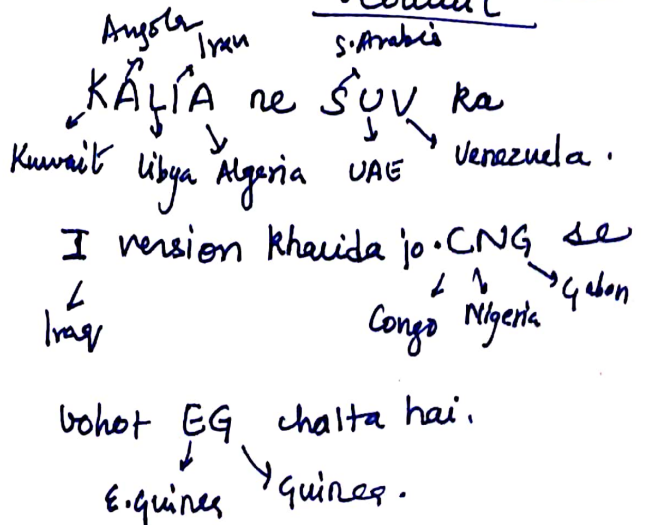 Angola Iran S.Arabia
KALIA ne SUV ka
Kuwait libya Algeria UAE Venezuela.
I version kharida jo CNG se
Iraq Congo Nigeria Gabon
bohot EG chalta hai.
E.guinea Guinea.